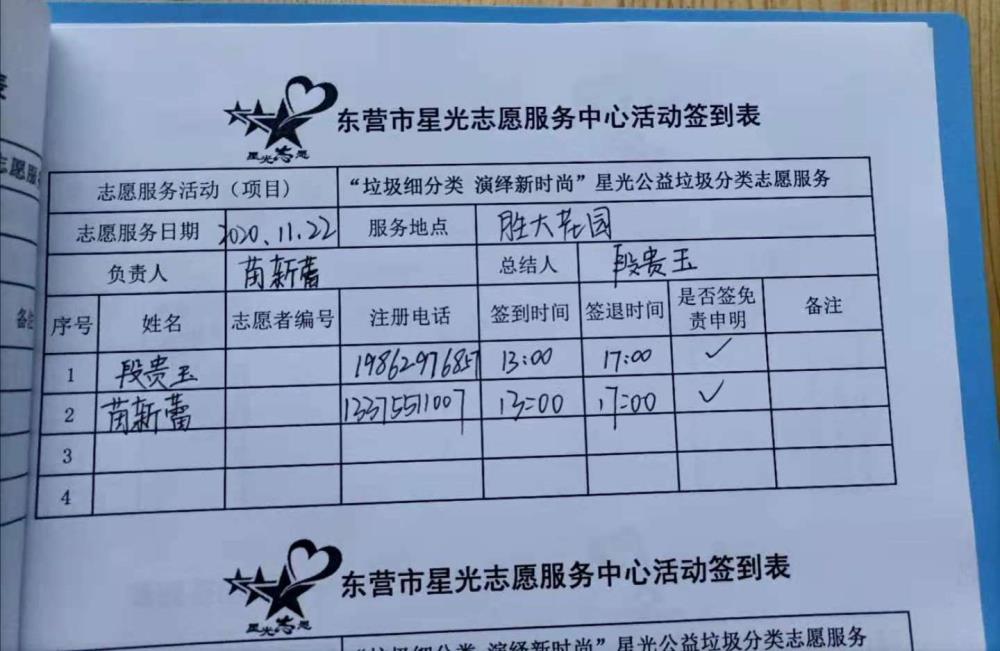 星光志愿
东营市星光志愿服务中心活动签到表
志愿服务活动（项目） “垃圾细分类 演绎新时尚”星光公益垃圾分类志愿服务
志愿服务日期 2020.11.22 服务地点 胜大花园
负责人 苘新蕾 总结人 段贵玉
序号 姓名 志愿者编号 注册电话 签到时间 签退时间 是否签免责申明 备注
1 段贵玉 19862976857 13:00 17:00 ✓
2 苘新蕾 13375511007 13:00 17:00 ✓
3
4
星光志愿
东营市星光志愿服务中心活动签到表
“垃圾细分类 演绎新时尚”星光公益垃圾分类志愿服务
表
志愿服
备注